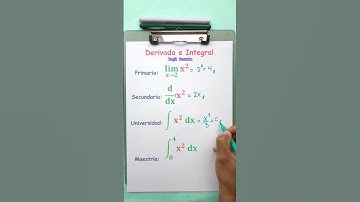 Derivada e Integral
Primaria: lim x→2 x² = 2² = 4
Secundaria: d/dx x² = 2x
Universidad: ∫ x² dx = x³/3 + C
Maestría: ∫₀⁴ x² dx